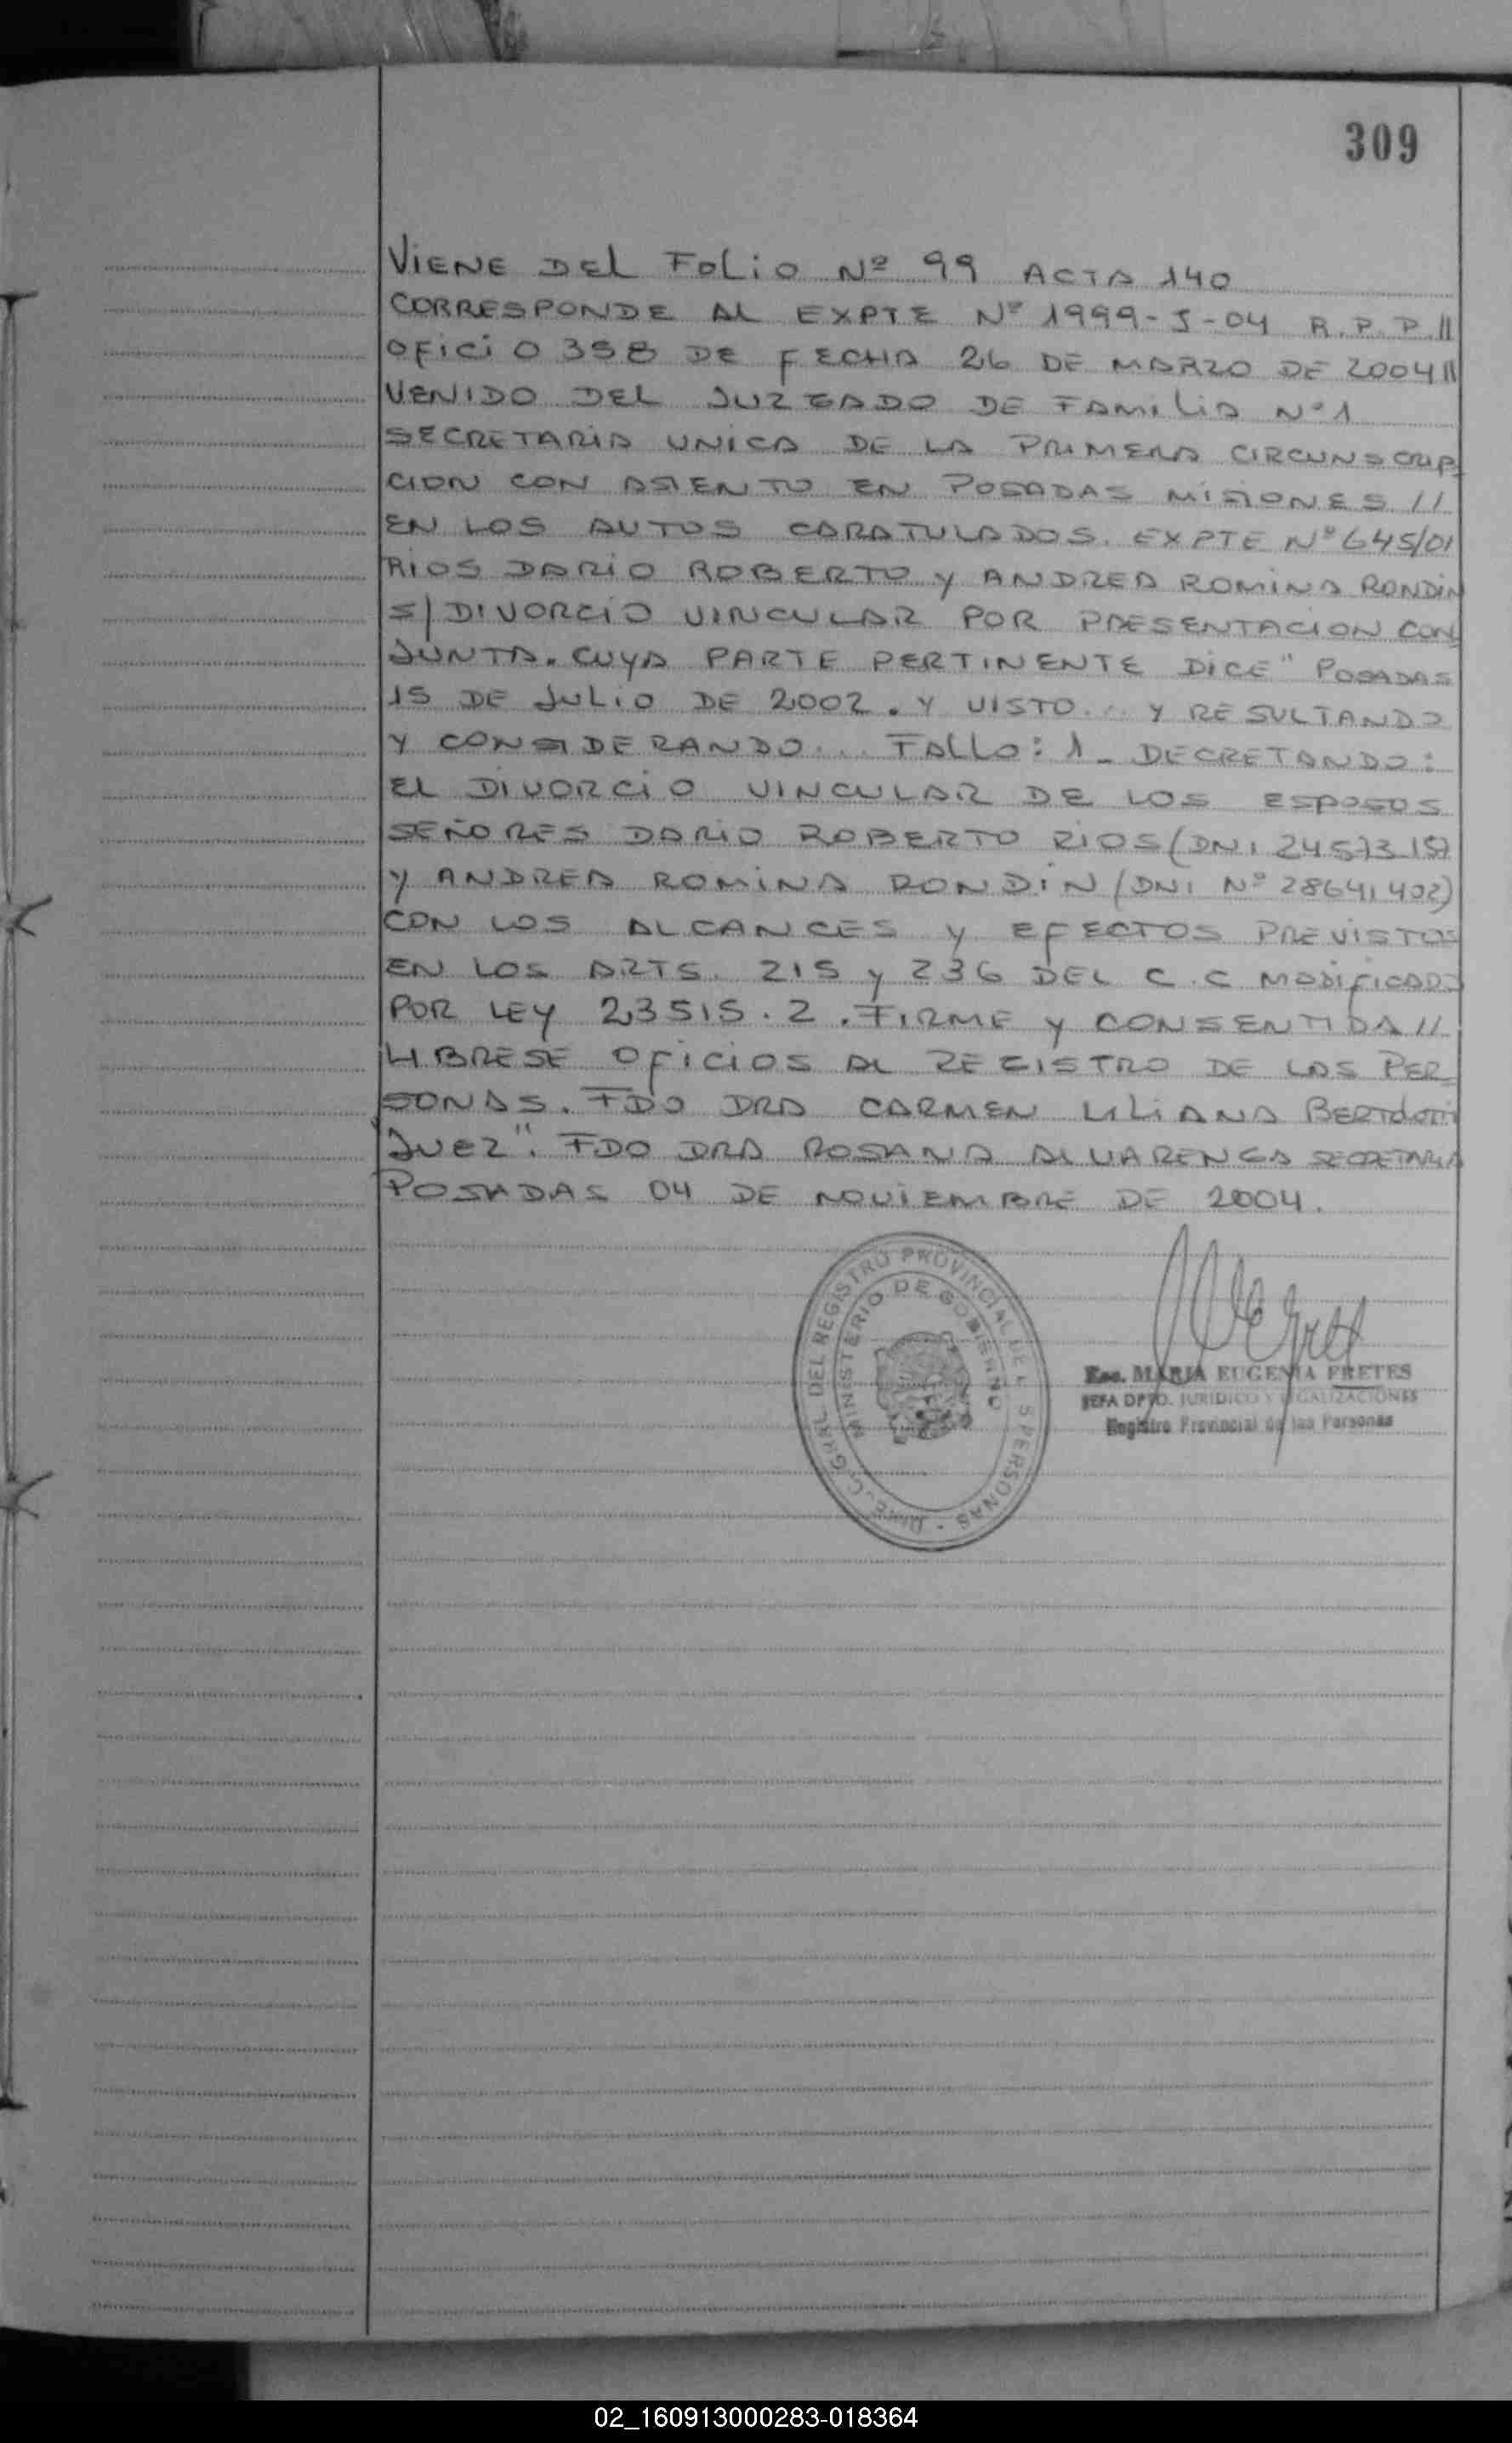 309
VIENE DEL FOLIO Nº 99 ACTA 140
CORRESPONDE AL EXPTE Nº 1999-J-04 R.P.P.//
OFICIO 358 DE FECHA 26 DE MARZO DE 2004//
VENIDO DEL JUZGADO DE FAMILIA Nº1
SECRETARIA UNICA DE LA PRIMERA CIRCUNSCRIP
CION CON ASIENTO EN POSADAS MISIONES //
EN LOS AUTOS CARATULADOS. EXPTE Nº 645/01
RIOS DARIO ROBERTO Y ANDREA ROMINA RONDIN
S/ DIVORCIO VINCULAR POR PRESENTACION CON
JUNTA. CUYA PARTE PERTINENTE DICE "POSADAS
15 DE JULIO DE 2002. Y VISTO... Y RESULTANDO
Y CONSIDERANDO... FALLO: 1_ DECRETANDO:
EL DIVORCIO VINCULAR DE LOS ESPOSOS
SEÑORES DARIO ROBERTO RIOS (DNI
Y ANDREA ROMINA RONDIN (DNI Nº 28641402)
CON LOS ALCANCES Y EFECTOS PREVISTOS
EN LOS ARTS. 215 Y 236 DEL C.C MODIFICADO
POR LEY 23515. 2. FIRME Y CONSENTIDA //
LIBRESE OFICIOS AL REGISTRO DE LAS PER
SONAS. FDO DRA CARMEN LILIANA
JUEZ". FDO DRA ROSANA ALVARENGA SECRETARIA
POSADAS 04 DE NOVIEMBRE DE 2004.
DIREC. GRAL DEL REGISTRO PROVINCIAL DE LAS PERSONAS
MINISTERIO DE GOBIERNO
Esc. MARIA EUGENIA FRETES
JEFA DPTO. JURIDICO Y LEGALIZACIONES
Registro Provincial de las Personas
02_160913000283-018364